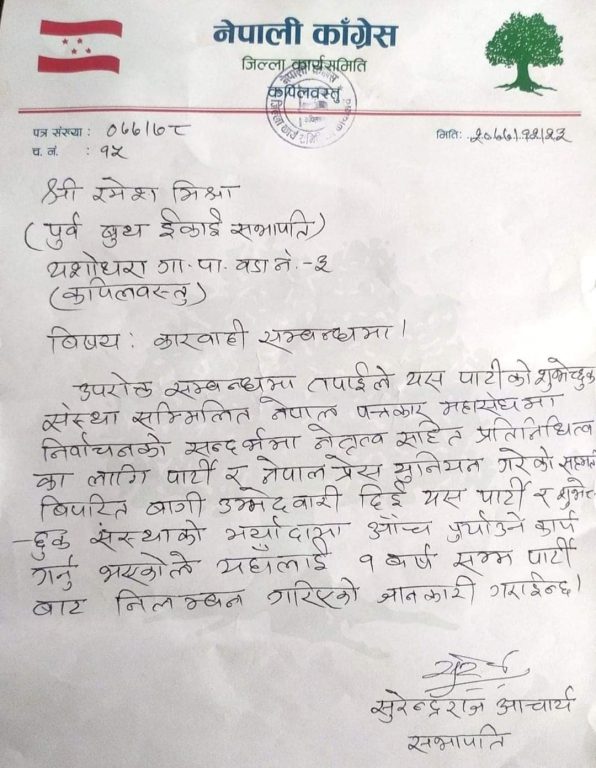 नेपाली काँग्रेस
जिल्ला कार्यसमिति
कपिलवस्तु
पत्र संख्या : ०७७/७८
च. नं. : १५
मिति: २०७७/१२/२३
श्री रमेश मिश्रा
(पुर्व बुथ ईकाई सभापति)
यशोधरा गा.पा. वडा नं.-३
(कपिलवस्तु)
बिषय : कारवाही सम्बन्धमा।
उपरोक्त सम्बन्धमा तपाईले यस पार्टीको शुभेच्छुक
संस्था सम्मिलित नेपाल पत्रकार महासंघमा
निर्वाचनको सन्दर्भमा नेतृत्व सहित प्रतिनिधित्व
का लागि पार्टी र नेपाल प्रेस युनियन गरेको सहमती
बिपरित बागी उम्मेदवारी दिई यस पार्टी र शुभेच्
-छुक संस्थाको मर्यादामा आँच पुर्याउने कार्य
गर्नु भएकोले यहाँलाई १ बर्ष सम्म पार्टी
बाट निलम्बन गरिएको जानकारी गराईन्छ।
सुरेन्द्रराज आचार्य
सभापति